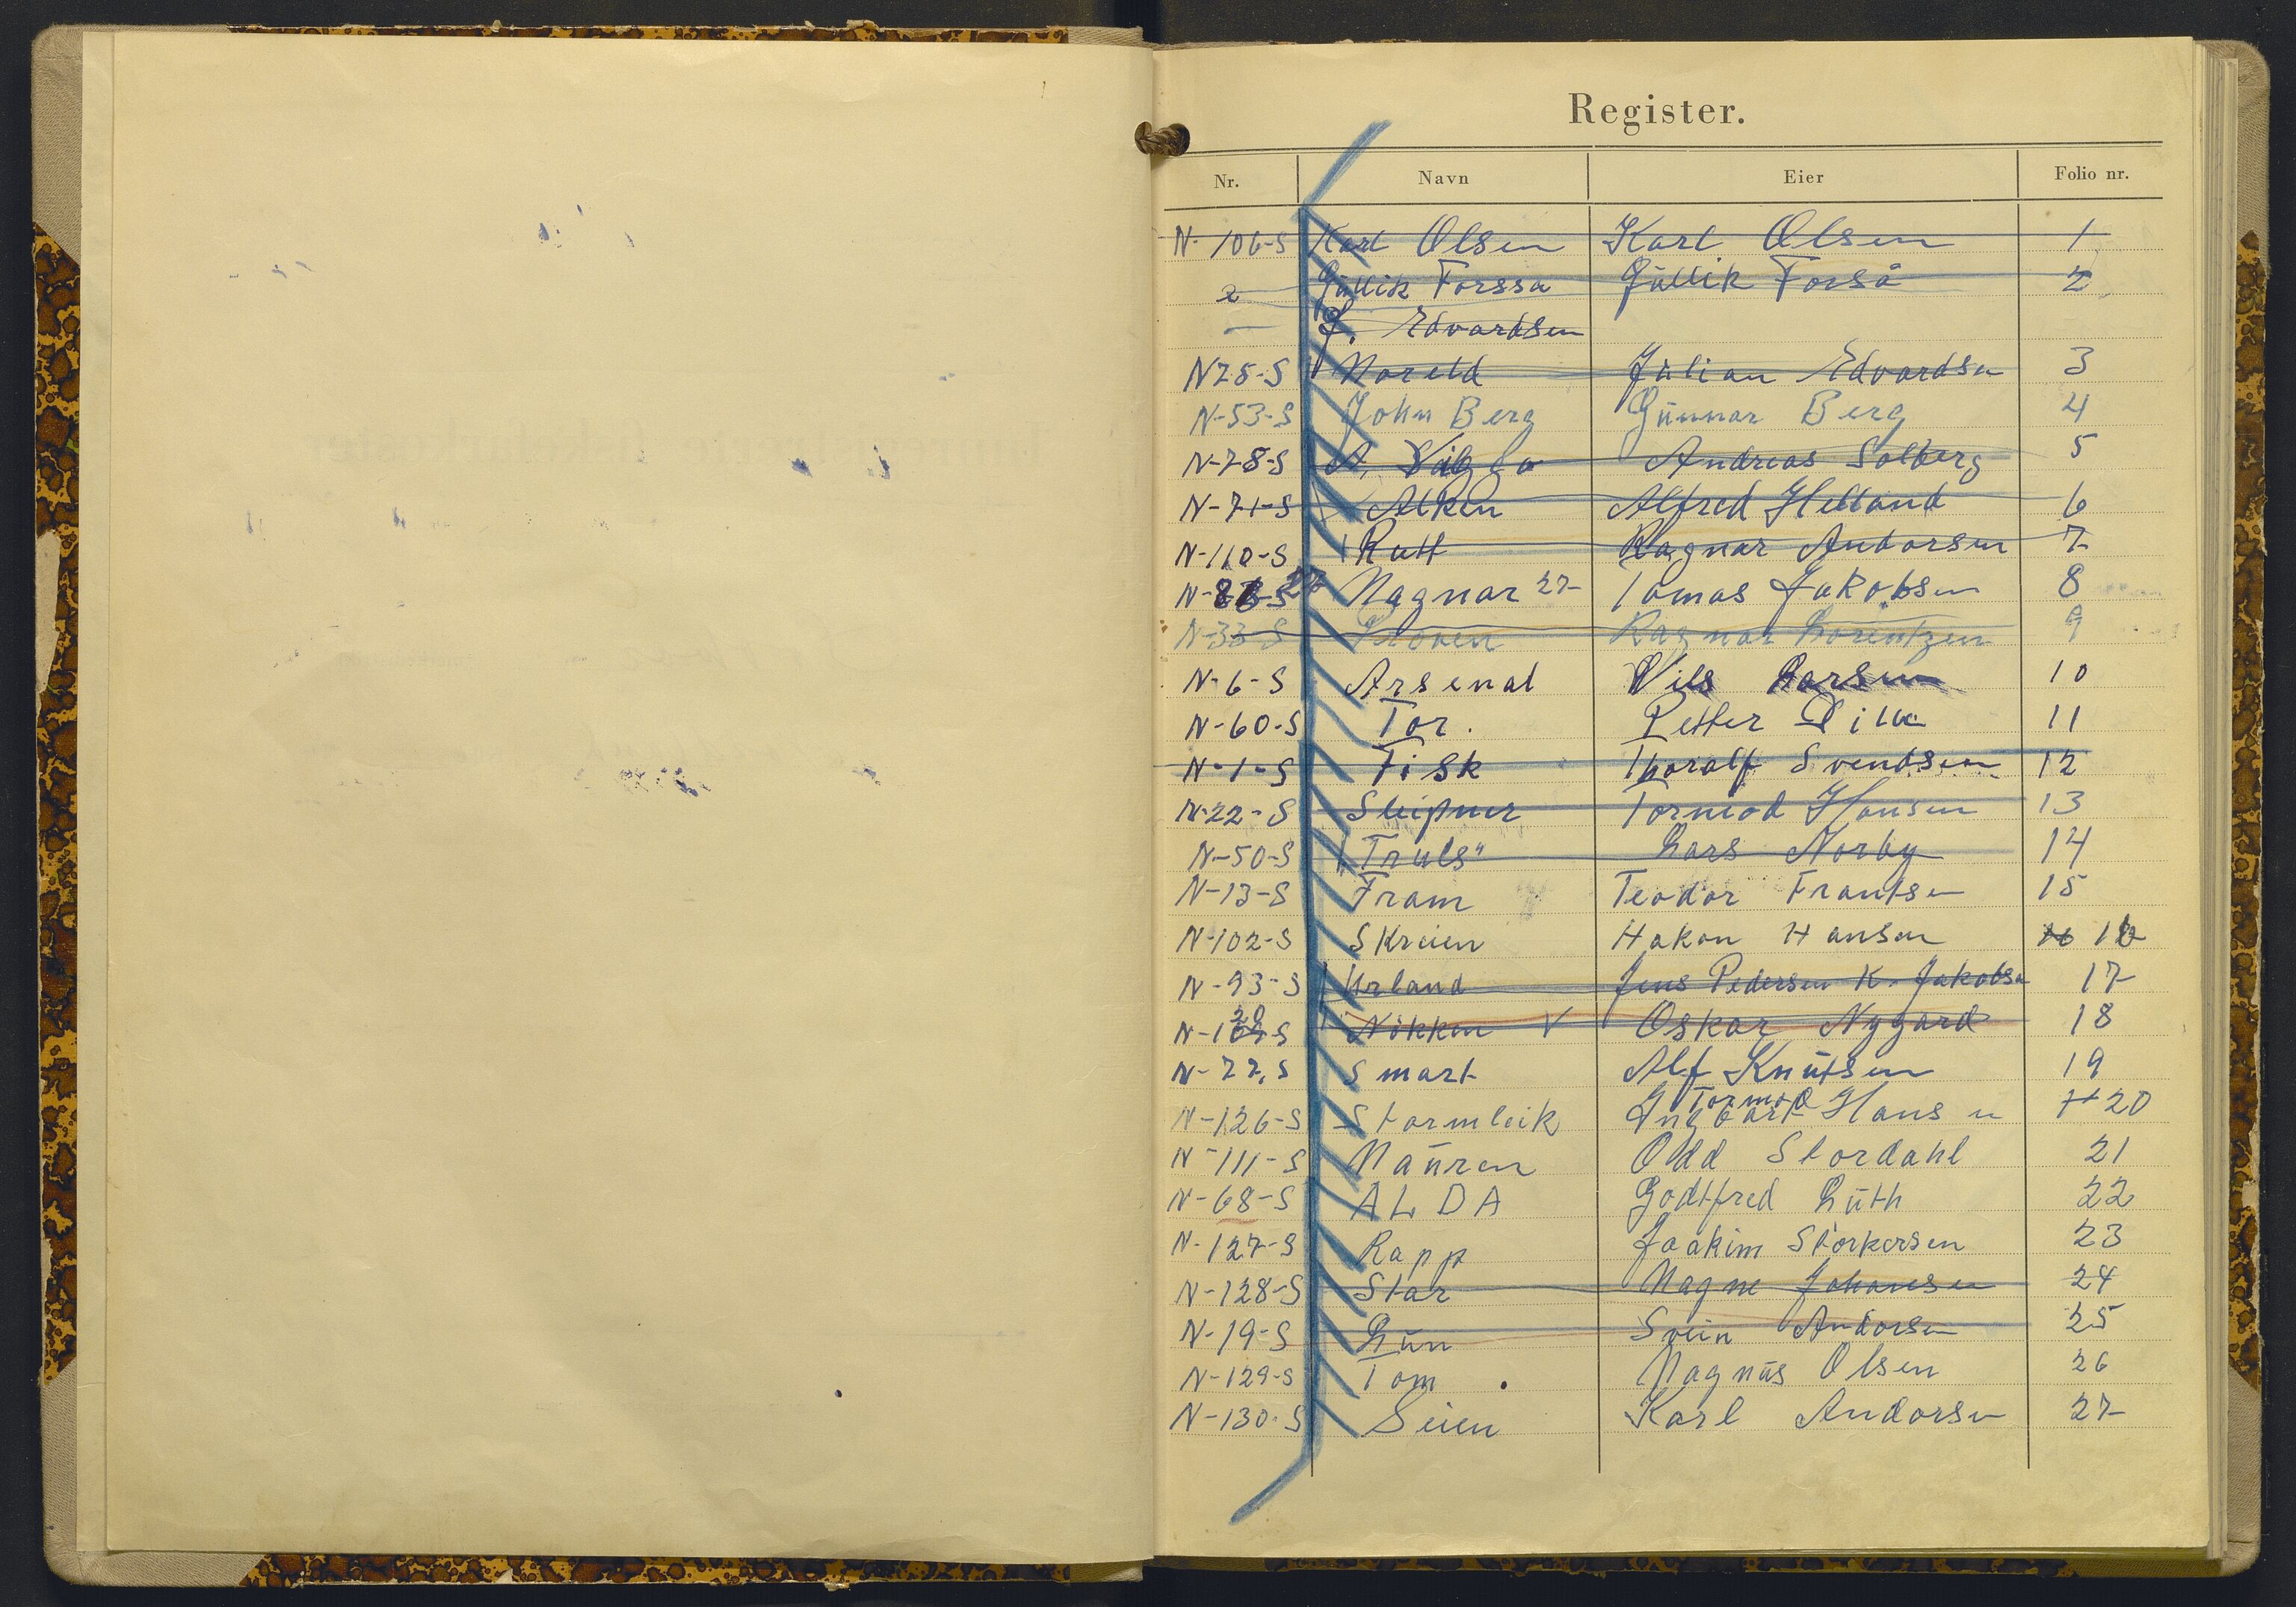 Register.
Nr. Navn Eier Folio nr.
N-106-S Karl Olsen Karl Olsen 1
Gullik Forssa Gullik Forså 2
— J. Edvardsen
N75-S Noreld Julian Edvardsen 3
N-53-S John Berg Gunnar Berg 4
N-78-S A. Andreas Solberg 5
N-71-S Alken Alfred Helland 6
N-110-S Rutt Ragnar Andorsen 7
N- Magnar 27 Tomas Jakobsen 8
N-33-S Ragnar Lorentzen 9
N-6-S Arsenal Nils Larsen 10
N-60-S Tor. Petter 11
N-1-S Fisk Thoralf Svendsen 12
N-22-S Sleipner Tormod Hansen 13
N-50-S "Truls" Lars Norby 14
N-13-S Fram Teodor Frantsen 15
N-102-S Skreien Hakon Hansen 16 16
N-93-S Urland Jens Pedersen K. Jakobsen 17
N-120-S Nökken V Oskar Nygård 18
N-77,S Smart Alf Knutsen 19
N-126-S Stormleik Ingvart Tormod Hansen 20
N-111-S Mauren Odd Stordahl 21
N-68-S ALDA Godtfred Luth 22
N-127-S Rapp Joakim Storkersen 23
N-128-S Star Magne Johansen 24
N-19-S Lun Svein Andorsen 25
N-129-S Tom . Magnus Olsen 26
N-130-S Seien Karl Andorsen 27